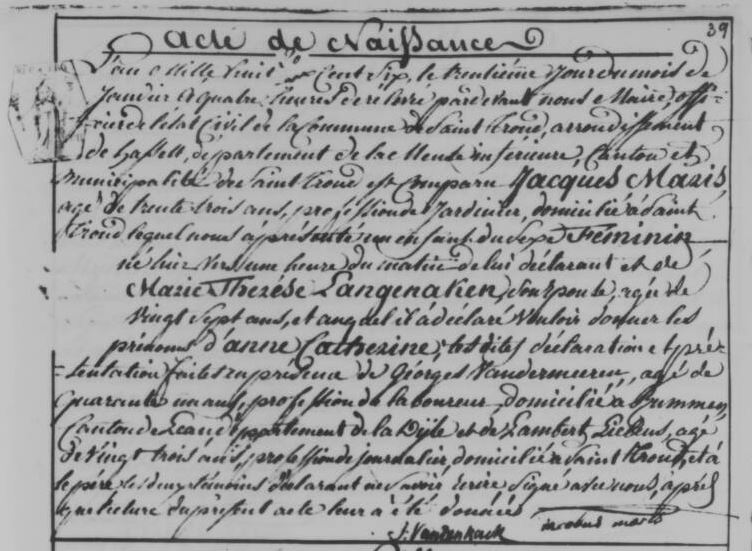 39
Acte de Naissance
L'an Mille huit Cent Six, le trentième Jour du mois de
Janvier à quatre heures de relevé pardevant nous Maire, offi-
-cier de l'état Civil de la Commune de Saint Trond, arrondissement
de hasselt, département de la Meuse inférieure, Canton et
Municipalité de Saint Trond est comparu Jacques Maris,
agé de trente trois ans, profession de Jardinier, domicilié à Saint
Trond lequel nous à présenté un enfant du Sexe Feminin
né hier vers une heure du matin de lui déclarant et de
Marie Therése Langenaken, son Epouse, agée de
Vingt Sept ans, et auquel il à déclaré vouloir donner les
prénoms d'anne Catherine; les dites déclaration et pré-
-sentation faites en présence de Georges Vandermeeren, agé de
quarante un ans, profession de laboureur, domicilié à Bummen,
Canton de Leau département de la Dyle et de Lambert Liebens, agé
de Vingt trois ans, profession de journalier, domicilié à Saint Trond, et à
le père les deux témoins déclarant ne savoir écrire Signé avec nous, après
que lecture du présent acte leur à été données
J. Vandenhack jacobus maris